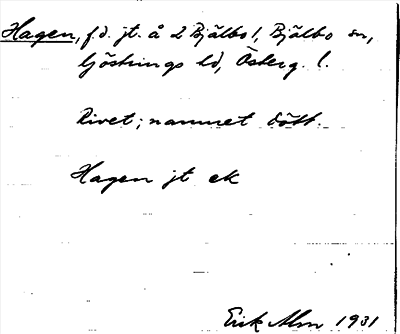 Hagen, f.d. jt. å 2 Bjälbo l, Bjälbo sn,
Göstrings hd, Österg. l.
Rivet; namnet dött.
Hagen jt ek
Erik Alm 1931